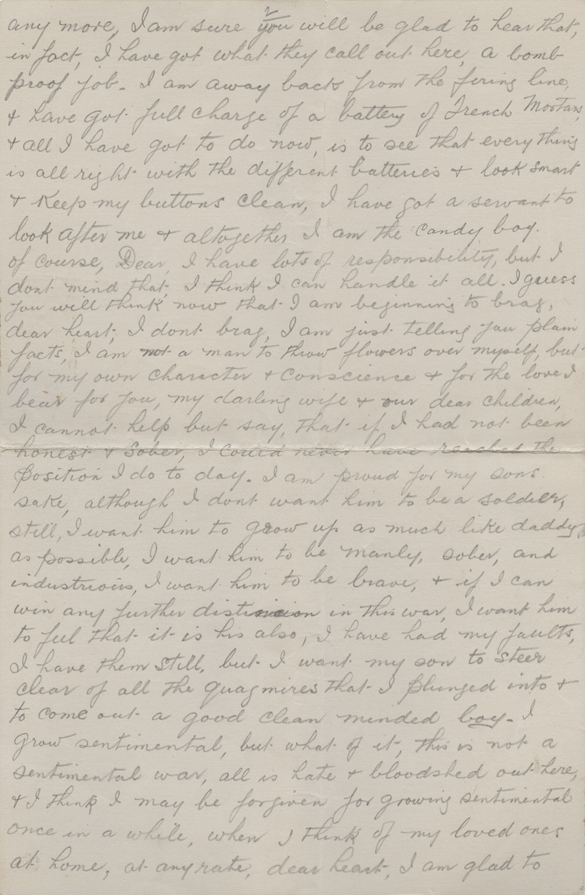 2
any more, I am sure you will be glad to hear that,
in fact, I have got what they call out here, a bomb
proof job. I am away back from the firing line,
& have got full charge of a battery of Trench Mortars,
& all I have got to do now, is to see that everything
is all right with the different batteries & look smart
& keep my buttons clean, I have got a servant to
look after me & altogether I am the candy boy.
of course, Dear, I have lots of responsibility, but I
dont mind that, I think I can handle it all. I guess
you will think now that I am beginning to brag,
dear heart, I dont brag, I am just telling you plain
facts, I am not a man to throw flowers over myself, but
for my own character & conscience & for the love I
bear for you, my darling wife & our dear children,
I cannot help but say, that if I had not been
honest & sober, I could never have reached the
position I do to day. I am proud for my sons
sake, although I dont want him to be a soldier,
still, I want him to grow up as much like daddy
as possible, I want him to be manly, sober, and
industrious, I want him to be brave, & if I can
win any further distinction in this war, I want him
to feel that it is his also, I have had my faults,
I have them still, but I want my son to steer
clear of all the quagmires that I plunged into &
to come out a good clean minded boy. I
grow sentimental, but what of it, this is not a
sentimental war, all is hate & bloodshed out here,
& I think I may be forgiven for growing sentimental
once in a while, when I think of my loved ones
at home, at any rate, dear heart, I am glad to